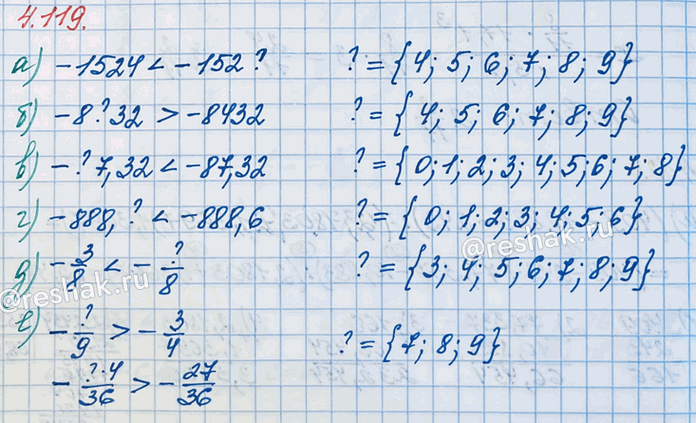 4.119.
а) -1524 < -152? ? = {4; 5; 6; 7; 8; 9}
б) -8?32 > -8432 ? = {4; 5; 6; 7; 8; 9}
в) -?7,32 < -87,32 ? = {0; 1; 2; 3; 4; 5; 6; 7; 8}
г) -888,? < -888,6 ? = {0; 1; 2; 3; 4; 5; 6}
д) -3/8 < -?/8 ? = {3; 4; 5; 6; 7; 8; 9}
е) -?/9 > -3/4 ? = {7; 8; 9}
-?·4/36 > -27/36
@reshak.ru
@reshak.ru